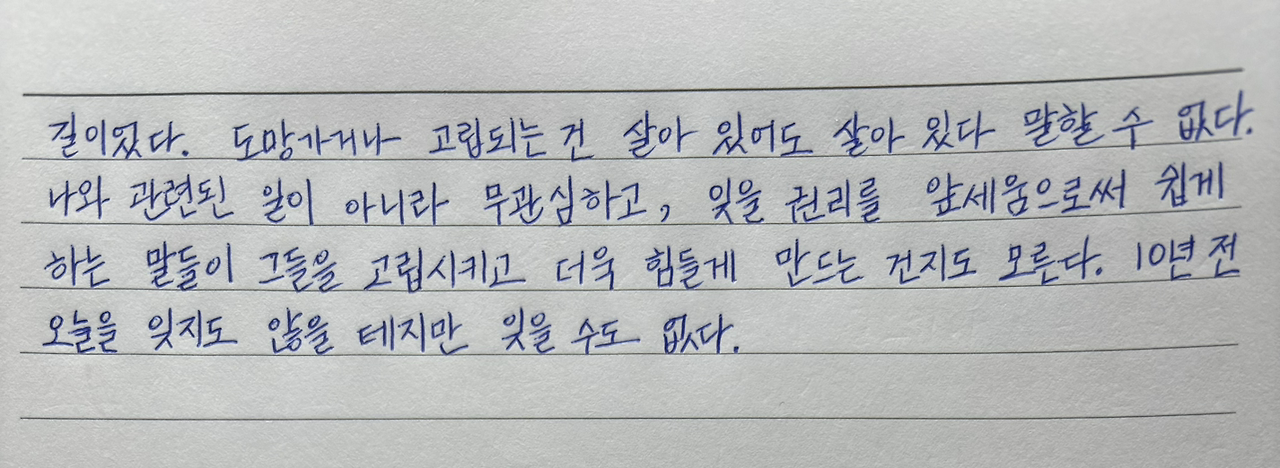 길이었다. 도망가거나 고립되는 건 살아 있어도 살아 있다 말할 수 없다.
나와 관련된 일이 아니라 무관심하고, 잊을 권리를 앞세움으로써 쉽게
하는 말들이 그들을 고립시키고 더욱 힘들게 만드는 건지도 모른다. 10년 전
오늘을 잊지도 않을 테지만 잊을 수도 없다.